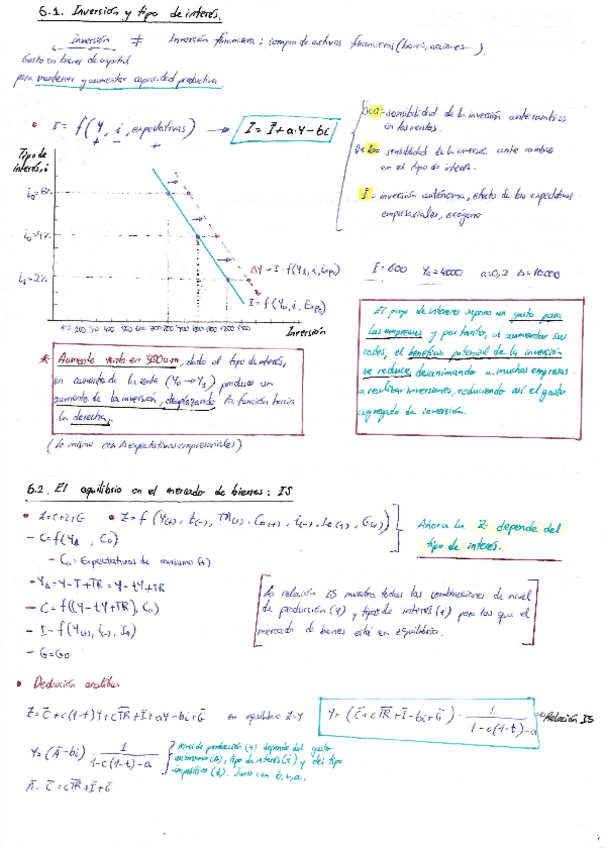 6.1. Inversión y tipo de interés.
Inversión ≠ Inversión financiera: compra de activos financieros (bonos, acciones...).
Gasto en bienes de capital
para mantener y aumentar capacidad productiva
• I = f(Y, i, expectativas) → I = Ī + a·Y − bi
+ − +
a = sensibilidad de la inversión ante cambios
en las ventas.
b = sensibilidad de la inversión ante cambios
en el tipo de interés.
Ī = inversión autónoma, efecto de las expectativas
empresariales, exógeno
Tipo de
interés, i
i₀=4%
i₁=2%
ΔY → I = f(Y₁, i, Exp₀)
I = f(Y₀, i, Exp₀)
Inversión
Ī = 600 Y₀ = 4000 a = 0,2 b = 10000
El pago de intereses supone un gasto para
las empresas y por tanto, al aumentar sus
costes, el beneficio potencial de la inversión
se reduce, desanimando a muchas empresas
a realizar inversiones, reduciendo así el gasto
agregado de inversión.
* Aumento renta en, dado el tipo de interés,
un aumento de la renta (Y₀ → Y₁) produce un
aumento de la inversión, desplazando la función hacia
la derecha.
(Lo mismo con Δ expectativas empresariales)
6.2. El equilibrio en el mercado de bienes: IS
• Z = C+I+G • Z = f
Ahora la Z depende del
tipo de interés.
− C = f(Yd, C₀)
− C₀ = Expectativas de consumo (+)
− Yd = Y − T + TR = Y − tY + TR
− C = f((Y − tY + TR), C₀)
− I = f(Y(+), i(−), I₀)
− G = G₀
La relación IS muestra todas las combinaciones de nivel
de producción (Y) y tipos de interés (i) para las que el
mercado de bienes está en equilibrio.
• Deducción analítica
Z = C̄ + c(1−t)Y + cTR̄ + Ī + aY − bi + Ḡ en equilibrio Z=Y Y = (C̄ + cTR̄ + Ī − bi + Ḡ) · 1 / 1−c(1−t)−a → Relación IS
Y = (Ā − bi) · 1 / 1−c(1−t)−a
Nivel de producción (Y) depende del gasto
autónomo (A), tipo de interés (i) y del tipo
impositivo (t). Junto con b, c, a.
Ā = C̄ + cTR̄ + Ī + Ḡ